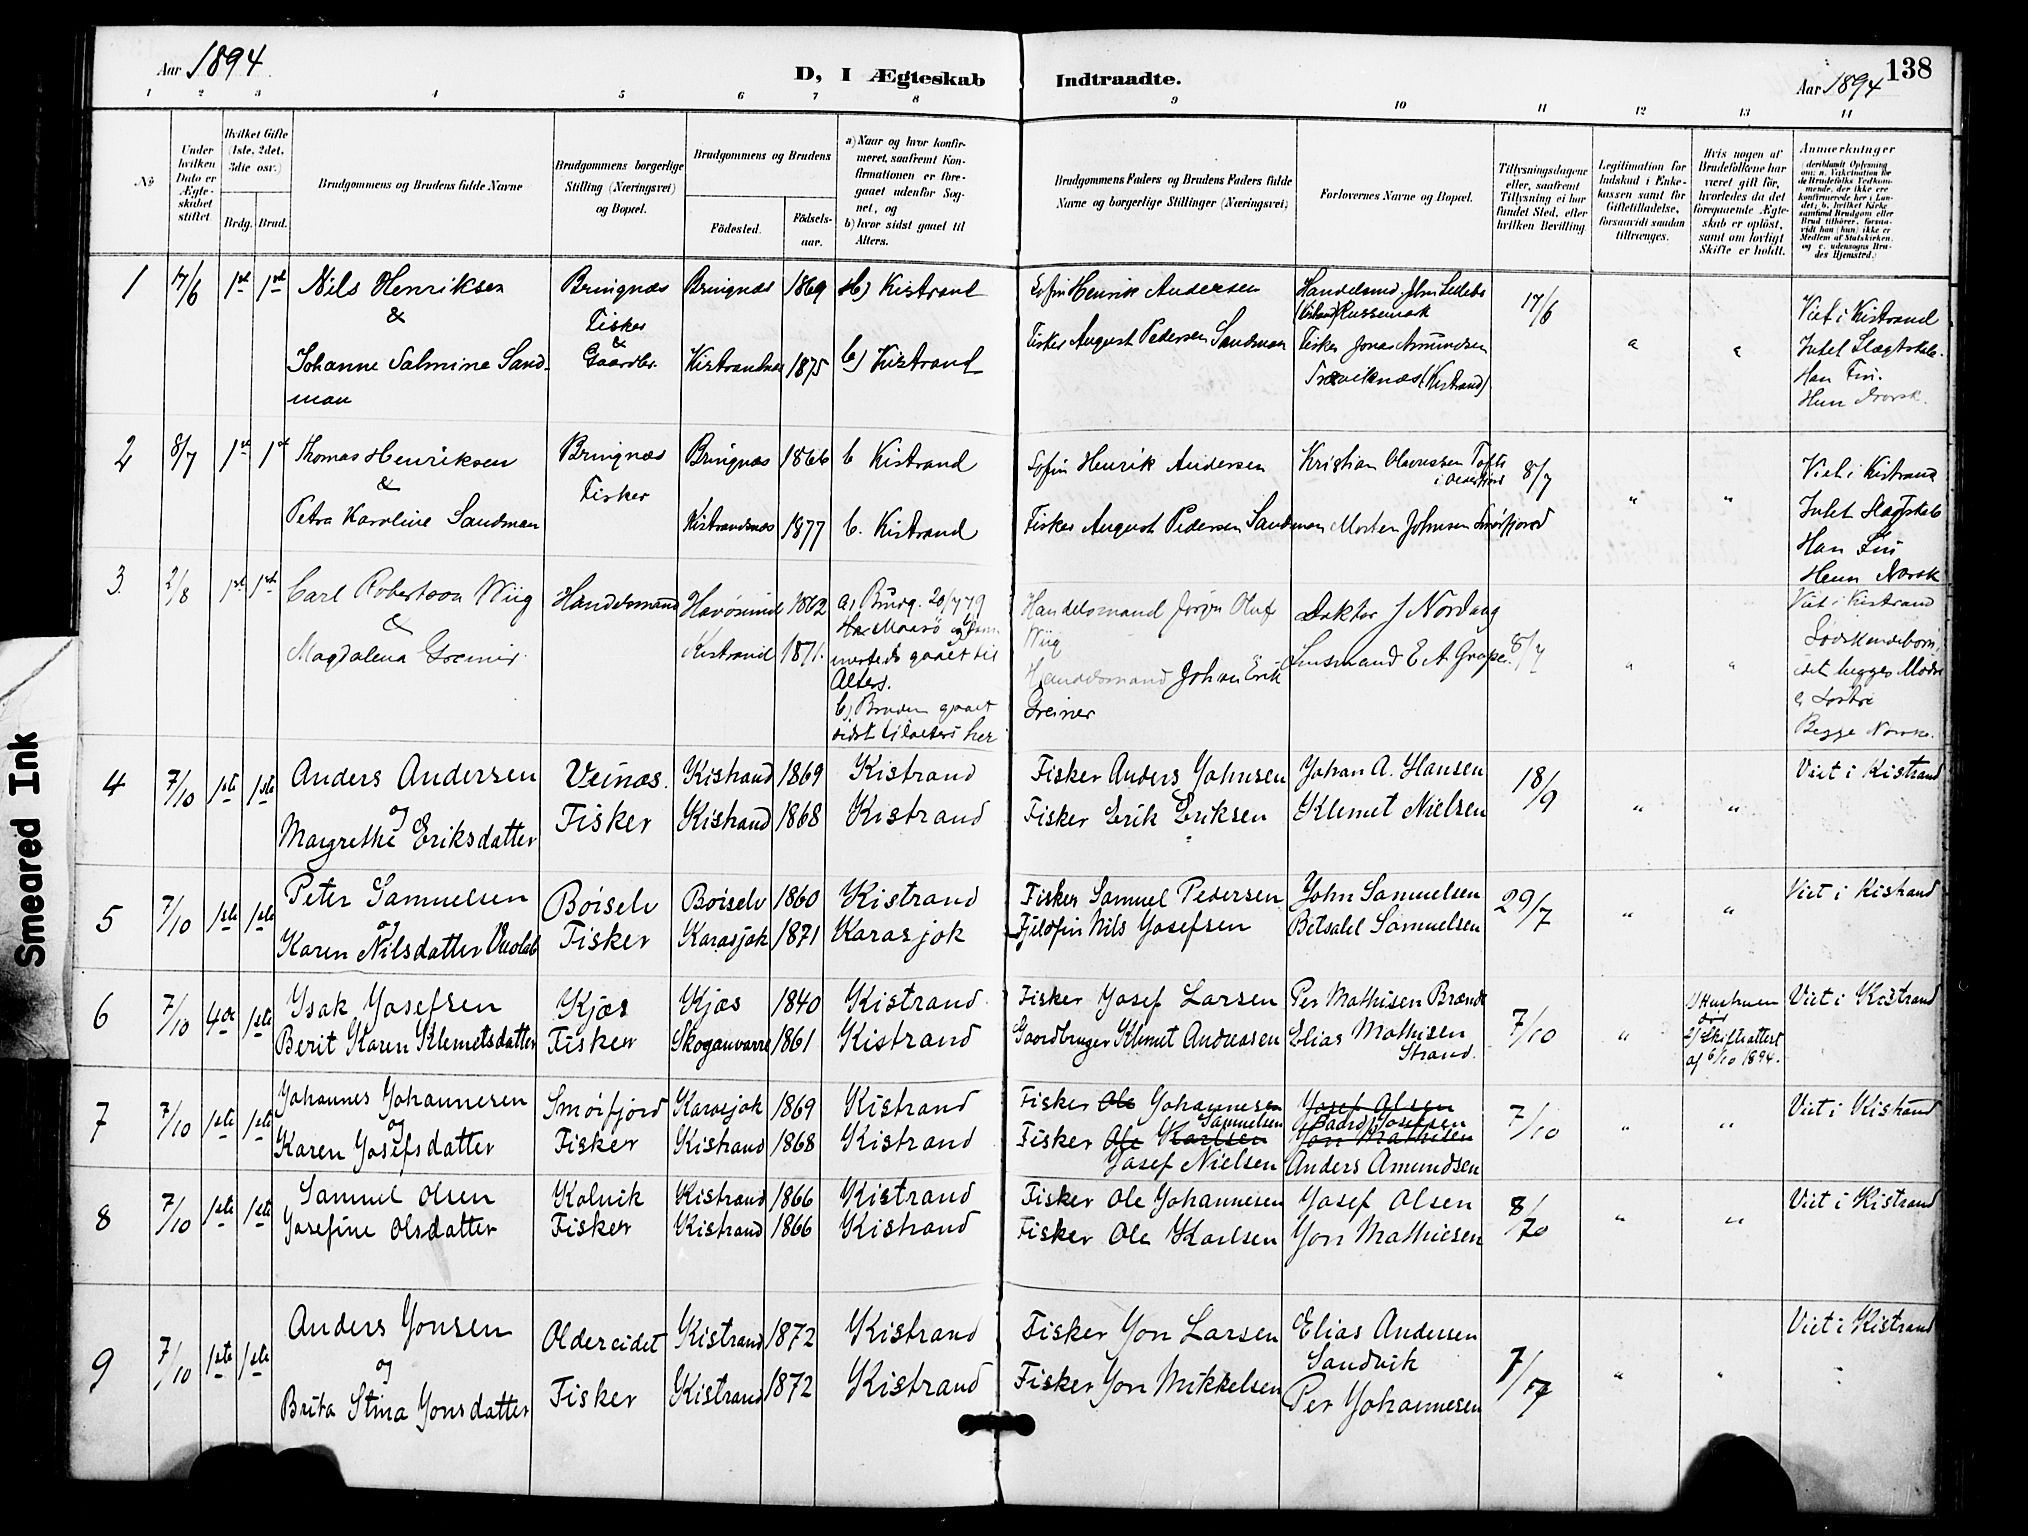 Aar 1894.
D, I Ægteskab Indtraadte.
Aar 1894
138
1 2 3 4 5 6 7 8 9 10 11 12 13 14
No
Under hvilken Dato er Ægteskabet stiftet
Hvilket Gifte (1ste, 2det, 3die osv.)
Brdg. Brud.
Brudgommens og Brudens fulde Navne
Brudgommens borgerlige Stilling (Næringsvei) og Bopæl.
Brudgommens og Brudens
Fødested.
Fødsels-aar.
a) Naar og hvor konfir-
meret, saafremt Kon-
firmationen er fore-
gaaet udenfor Sog-
net, og
b) hvor sidst gaaet til
Alters.
Brudgommens Faders og Brudens Faders fulde
Navne og borgerlige Stillinger (Næringsvei)
Forlovernes Navne og Bopæl.
Tillysningsdagene
eller, saafremt
Tillysning ei har
fundet Sted, efter
hvilken Bevilling
Legitimation for
Indskud i Enke-
kassen samt for
Giftetilladelse,
forsaavidt saadan
tiltrænges.
Hvis nogen af
Brudefolkene har
været gift før,
hvorledes da det
foregaaende Ægte-
skab er opløst,
samt om lovligt
Skifte er holdt.
Anmærkninger
1 17/6 1ste 1ste Nils Henriksen & Johanne Salmine Sandman
Bringnæs Fisker & Gaardbr.
Bringnæs 1869 b) Kistrand
Kistrandnes 1875 b) Kistrand
Søfin Henrik Andersen
Fisker August Pedersen Sandman
Fisker Jonas Amundsen
Trækviknæs (Kistrand)
17/6
Viet i Kistrand
Intet Slægtskab.
Han Fin.
Hun Norsk.
2 8/7 1ste 1ste Thomas Henriksen & Petra Karoline Sandman
Bringnæs Fisker
Bringnæs 1866 b Kistrand
Kistrandnæs 1877 b. Kistrand
Søfin Henrik Andersen
Fisker August Pedersen Sandman
Kristian Olaussen Tofte i Olderfjord
Morten Johnsen Smörfjord
8/7 " "
Viet i Kistrand
Intet Slægtskab
Han Fin
Hun Norsk
3. 2/8 1ste 1ste Carl Robertson Wiig & Magdalena Greiner.
Handelsmand
Havösund 1862
Kistrand 1871.
a) Brudg. 20/7 79
Alters.
b) Bruden gaaet
sidst til alters her
Handelsmand Jörgn Oluf Wiig
Handelsmand Johan Erik Greiner
Doktor J Nordang
Lensmand E A Grape.
8/7 " "
Viet i Kistrand
Södskendebörn,
Begge Norske.
4 7/10 1ste 1ste Anders Andersen og Margrethe Eriksdatter
Veinæs. Fisker
Kistrand 1869 Kistrand
Kistrand 1868 Kistrand
Fisker Anders Johnsen
Fisker Erik Eriksen
Johan A. Hansen
Klemet Nielsen
18/9 " "
Viet i Kistrand
5 7/10 1ste 1ste Peter Samuelsen og Karen Nilsdatter Vuolab
Börselv Fisker
Börselv 1860 Kistrand
Karasjok 1871 Karasjok
Fisker Samuel Pedersen
Fjeldfin Nils Josefsen
John Samuelsen
Betsalel Samuelsen
29/7 " "
Viet i Kistrand
6 7/10 4de 1ste Isak Josefsen
Berit Karen Klemetsdatter
Kjæs Fisker
Kjæs 1840 Kistrand.
Skoganvarre 1861 Kistrand
Fisker Josef Larsen
Gaardbruger Klemet Andreasen
Per Mathisen Brænde
Elias Mathisen Strand.
7/10 "
2/ Skifteattest
af 6/10 1894.
Viet i Kistrand
7 7/10 1ste 1ste Johannes Johannesen og Karen Josefsdatter
Smörfjord Fisker
Karasjok 1869 Kistrand
Kistrand 1868 Kistrand
Fisker Ole Johannesen Samuelsen
Fisker Ole Karlsen
Josef Nielsen
Josef Olsen
Baard Josefsen
Jon Mathisen
Anders Amundsen
7/10 " "
Viet i Kistrand
8 7/10 1ste 1ste Samuel Olsen
Josefine Olsdatter
Kolvik Fisker
Kistrand 1866 Kistrand
Kistrand 1866 Kistrand
Fisker Ole Johannesen
Fisker Ole Karlsen
Josef Olsen
Jon Mathiesen
" "
Viet i Kistrand
9 7/10 1ste 1ste Anders Jonsen og Brita Stina Jonsdatter
Oldereidet Fisker
Kistrand 1872 Kistrand
Kistrand 1872 Kistrand
Fisker Jon Larsen
Fisker Jon Mikkelsen
Elias Andersen Sandvik
Per Johannesen
" "
Viet i Kistrand
Smeared Ink